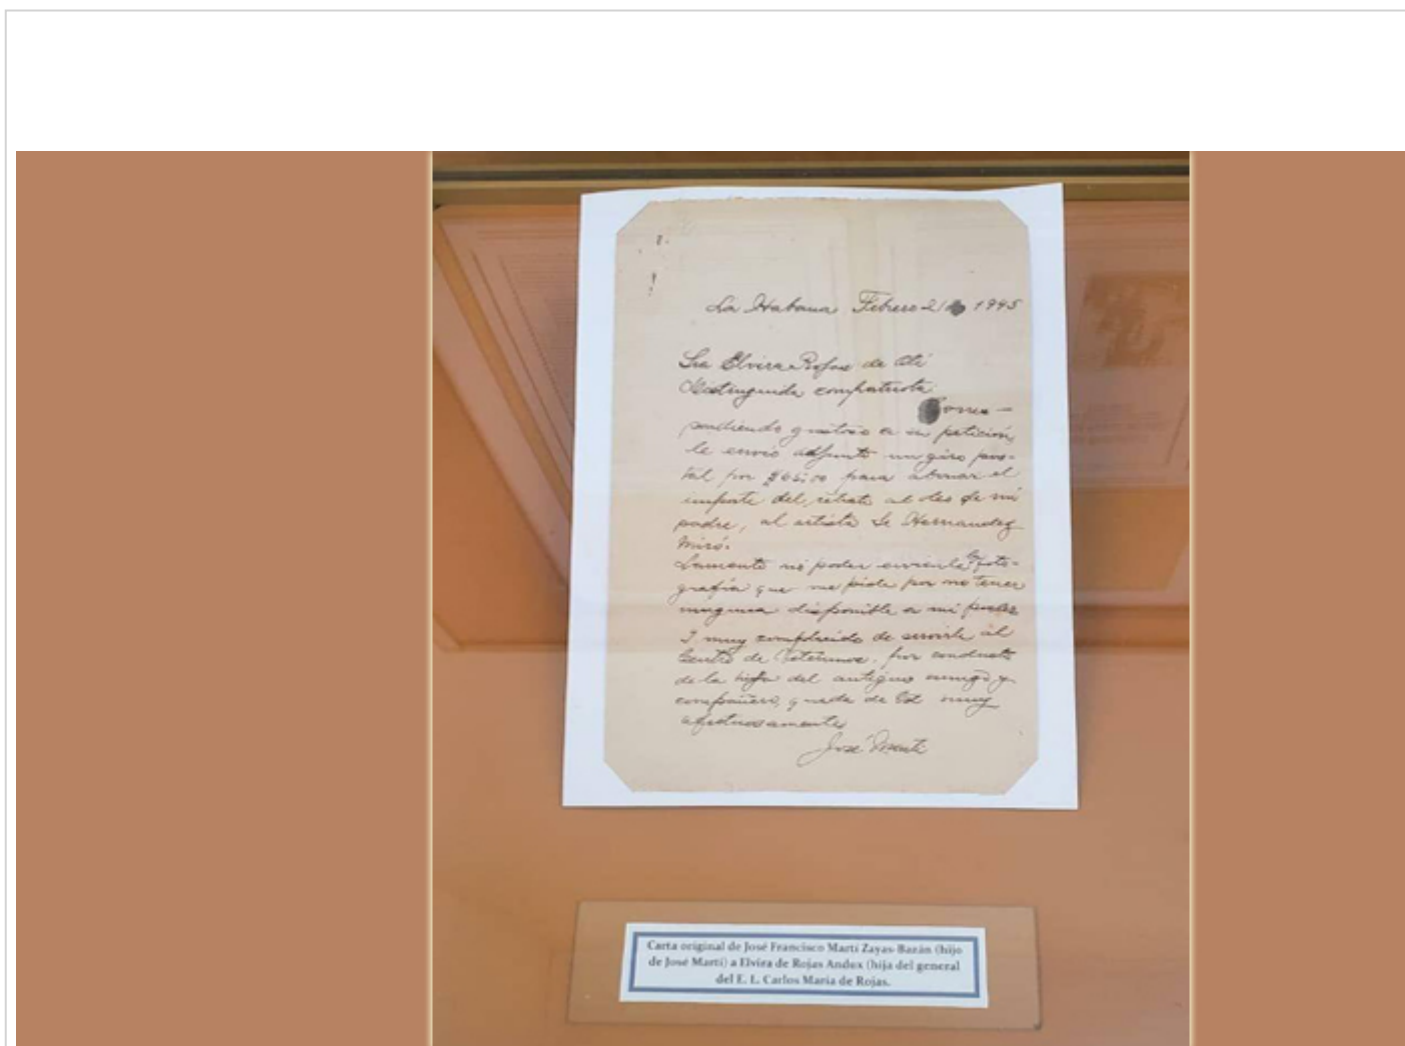 La Habana Febrero 21 1945
Sra Elvira Rojas de
Distinguida compatriota.
Corres-
pondiendo gustoso a su petición,
le envio adjunto un giro pos-
tal por $65.00 para abonar el
importe del retrato al oleo de mi
padre, al artista Sr Hernandez
Miró.
Lamento no poder enviarle la foto-
grafía que me pide por no tener
ninguna disponible a mi poder
I muy complacido de servirle al
Centro de Veteranos, por conducto
de la hija del antiguo amigo y
compañero, queda de Vd muy
afectuosamente
José Martí
Carta original de José Francisco Martí Zayas-Bazán (hijo
de José Martí) a Elvira de Rojas Andux (hija del general
del E. L. Carlos María de Rojas.